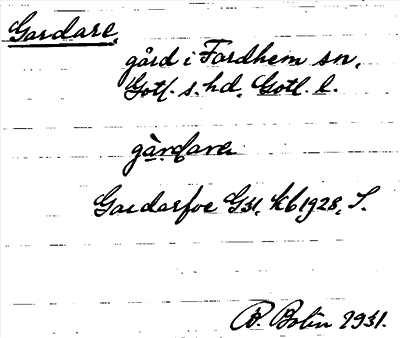 Gardare,
gård i Fardhem sn,
Gotl. s. hd, Gotl. l.
gàrdara
Gardarfve G31, kb 1928, S.
B. Bolin 1931.